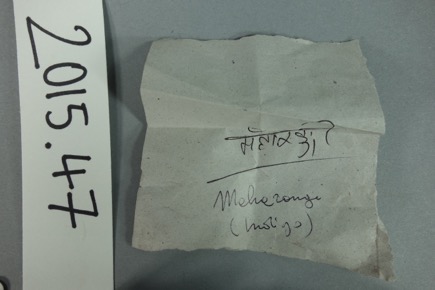 2015.47
महारङ्गी
Maharangi
(Indigo)